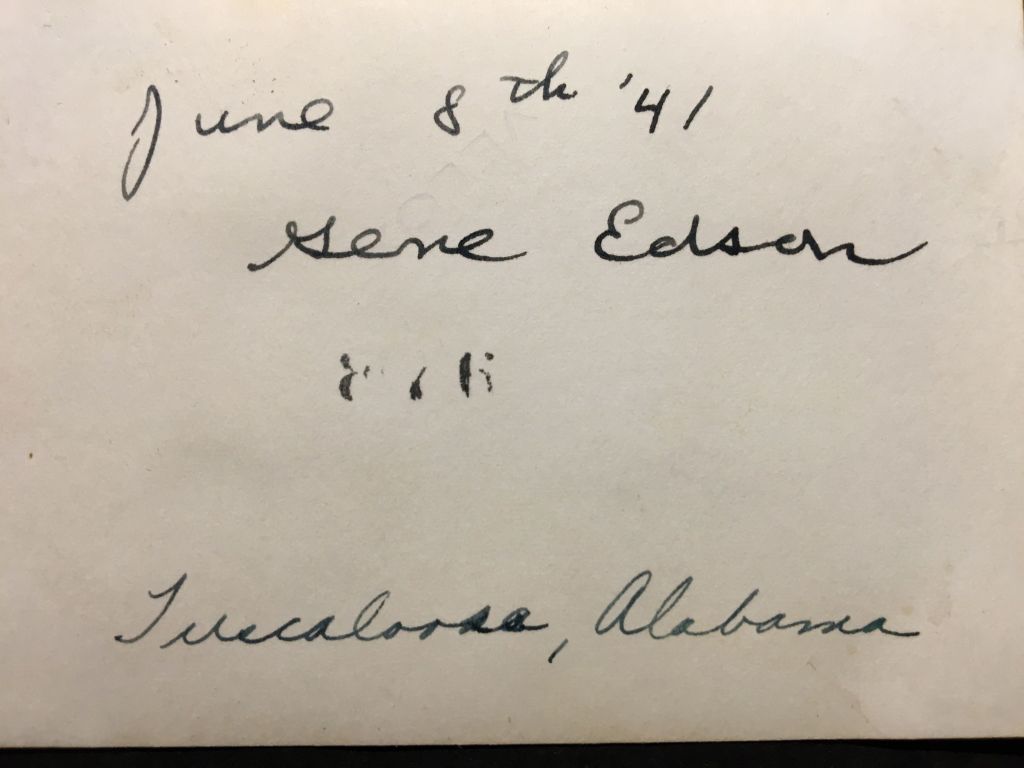 June 8th '41
Gene Edson
Tuscaloosa, Alabama